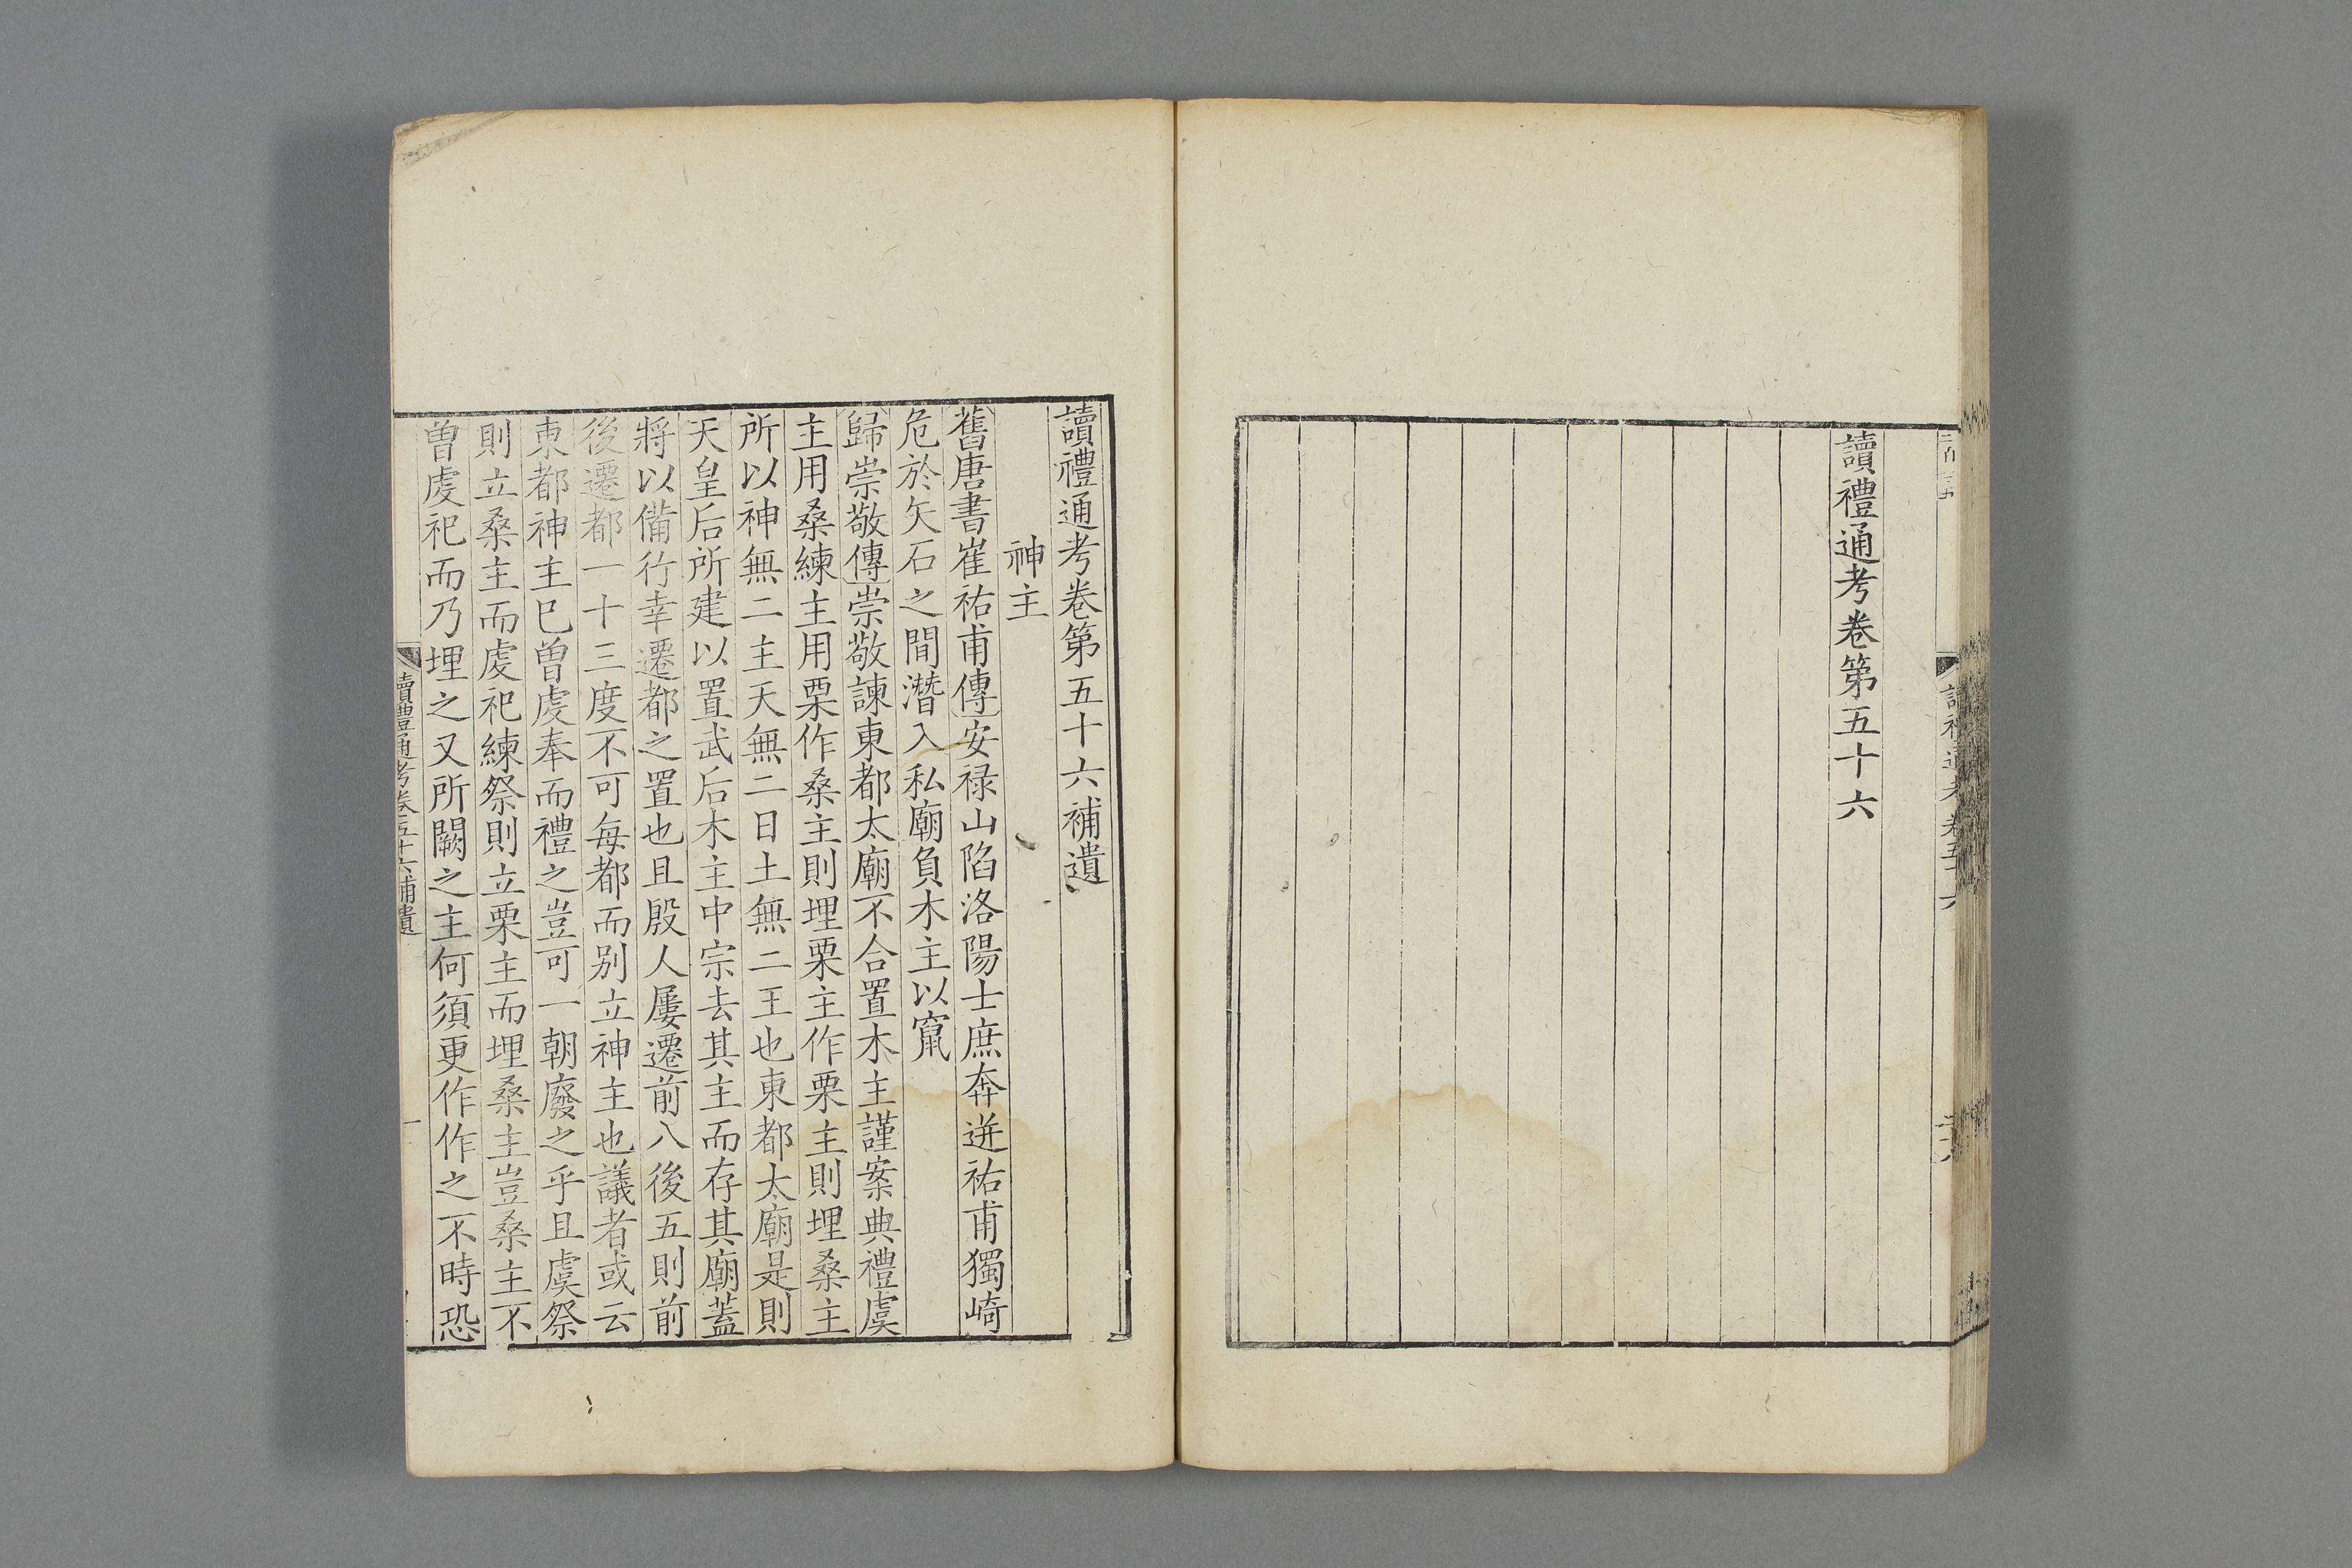 讀禮通考卷第五十六
讀禮通考卷第五十六補遺
神主
舊唐書崔祐甫傳安禄山陷洛陽士庶奔迸祐甫獨崎
危於矢石之間潛入私廟負木主以竄
歸崇敬傳崇敬諫東都太廟不合置木主謹案典禮虞
主用桑練主用栗作桑主則埋栗主作栗主則埋桑主
所以神無二主天無二日土無二王也東都太廟是則
天皇后所建以置武后木主中宗去其主而存其廟蓋
將以備行幸遷都之置也且殷人屢遷前八後五則前
後遷都一十三度不可每都而别立神主也議者或云
東都神主已曾虔奉而禮之豈可一朝廢之乎且虞祭
則立桑主而虔祀練祭則立栗主而埋桑主豈桑主不
曾虔祀而乃埋之又所闕之主何須更作作之不時恐
讀禮通考卷五十六補遺
一